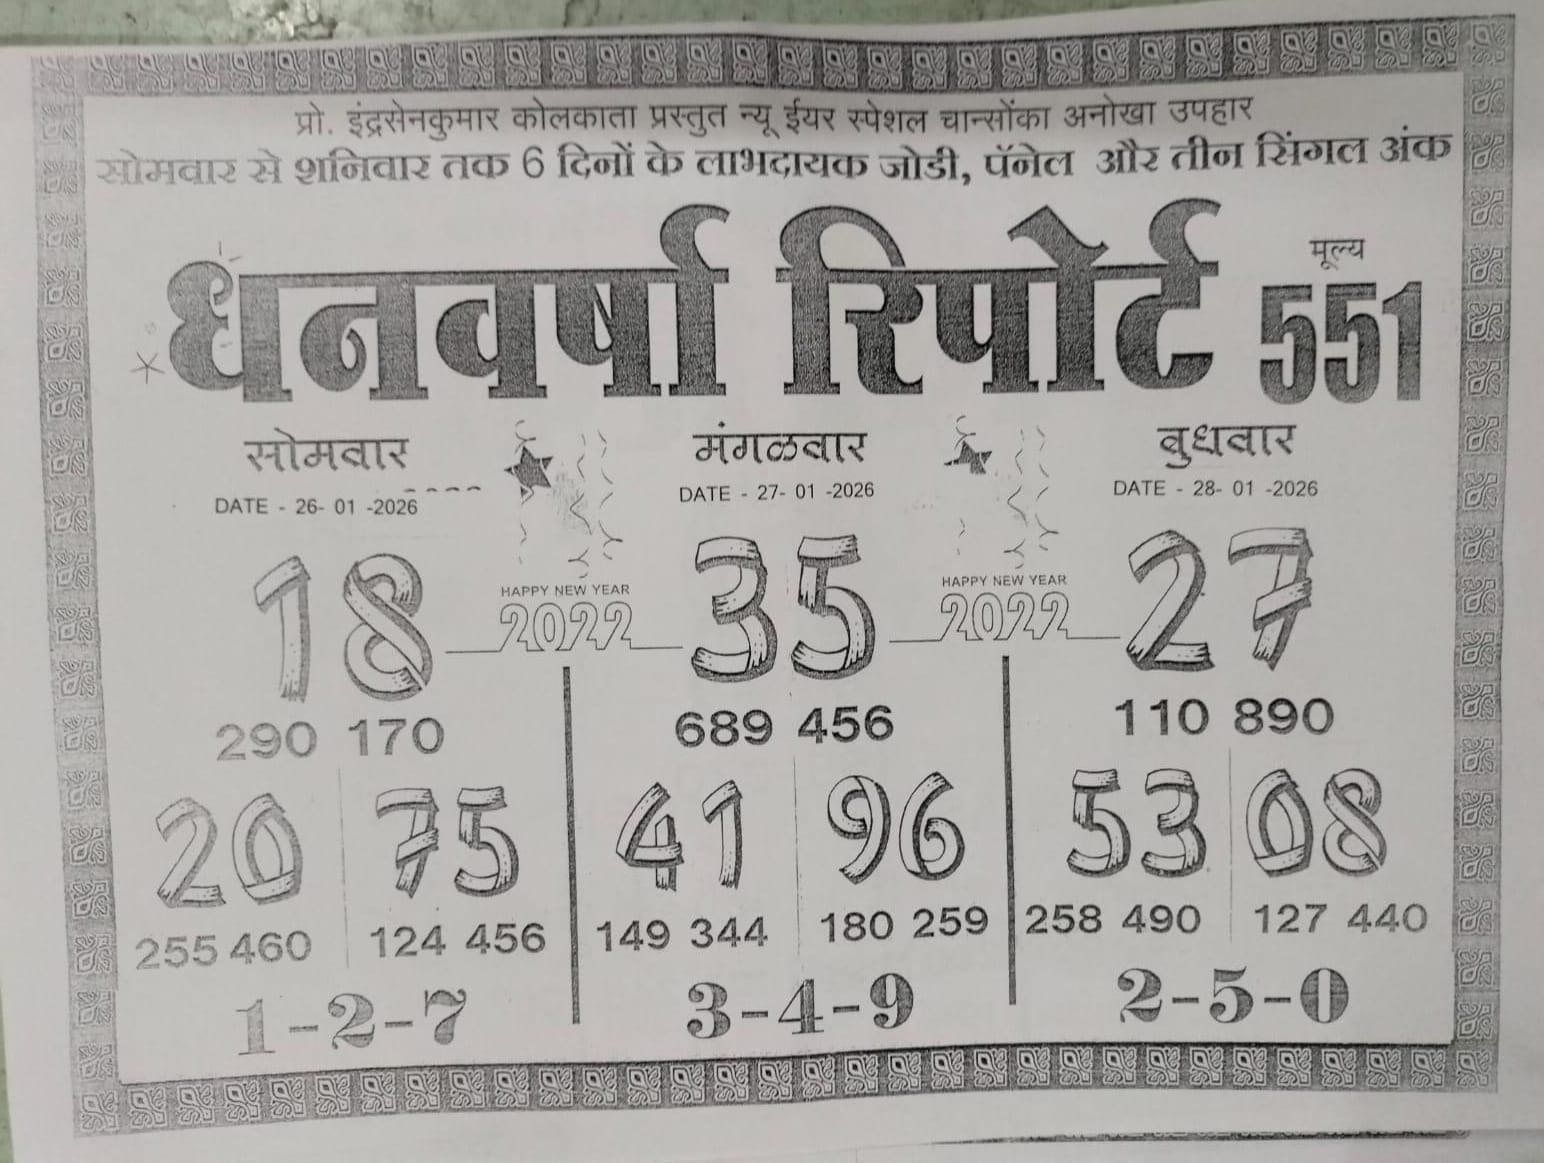 प्रो. इंद्रसेनकुमार कोलकाता प्रस्तुत न्यू ईयर स्पेशल चान्सोंका अनोखा उपहार
सोमवार से शनिवार तक 6 दिनों के लाभदायक जोडी, पॅनेल और तीन सिंगल अंक
धनवर्षा रिपोर्ट
मूल्य
551
सोमवार
DATE - 26- 01 -2026
18
290 170
20 75
255 460 124 456
1-2-7
HAPPY NEW YEAR
2022
मंगळवार
DATE - 27- 01 -2026
35
689 456
41 96
149 344 180 259
3-4-9
HAPPY NEW YEAR
2022
बुधवार
DATE - 28- 01 -2026
27
110 890
53 08
258 490 127 440
2-5-0